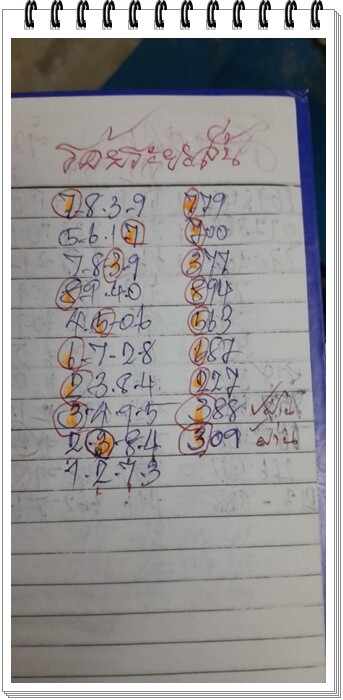 ร้อยระยะสั้น
7-8.3-9 779
5-6.17 700
7-839 377
89.40 894
4.5-06 563
6-7-28 687
2-3.8.4 227
3-4.9-5 388 ผ่าน
2-3-84 309 ผ่าน
1.2.7.3